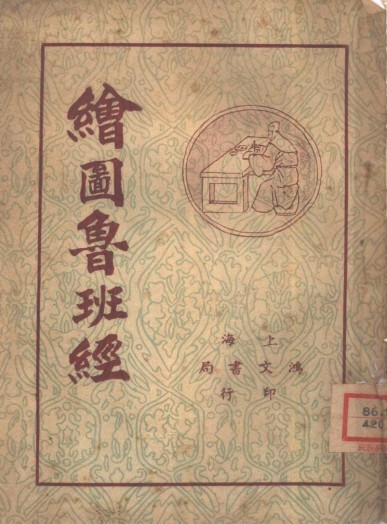 繪圖魯班經
上海
鴻文書局
印行